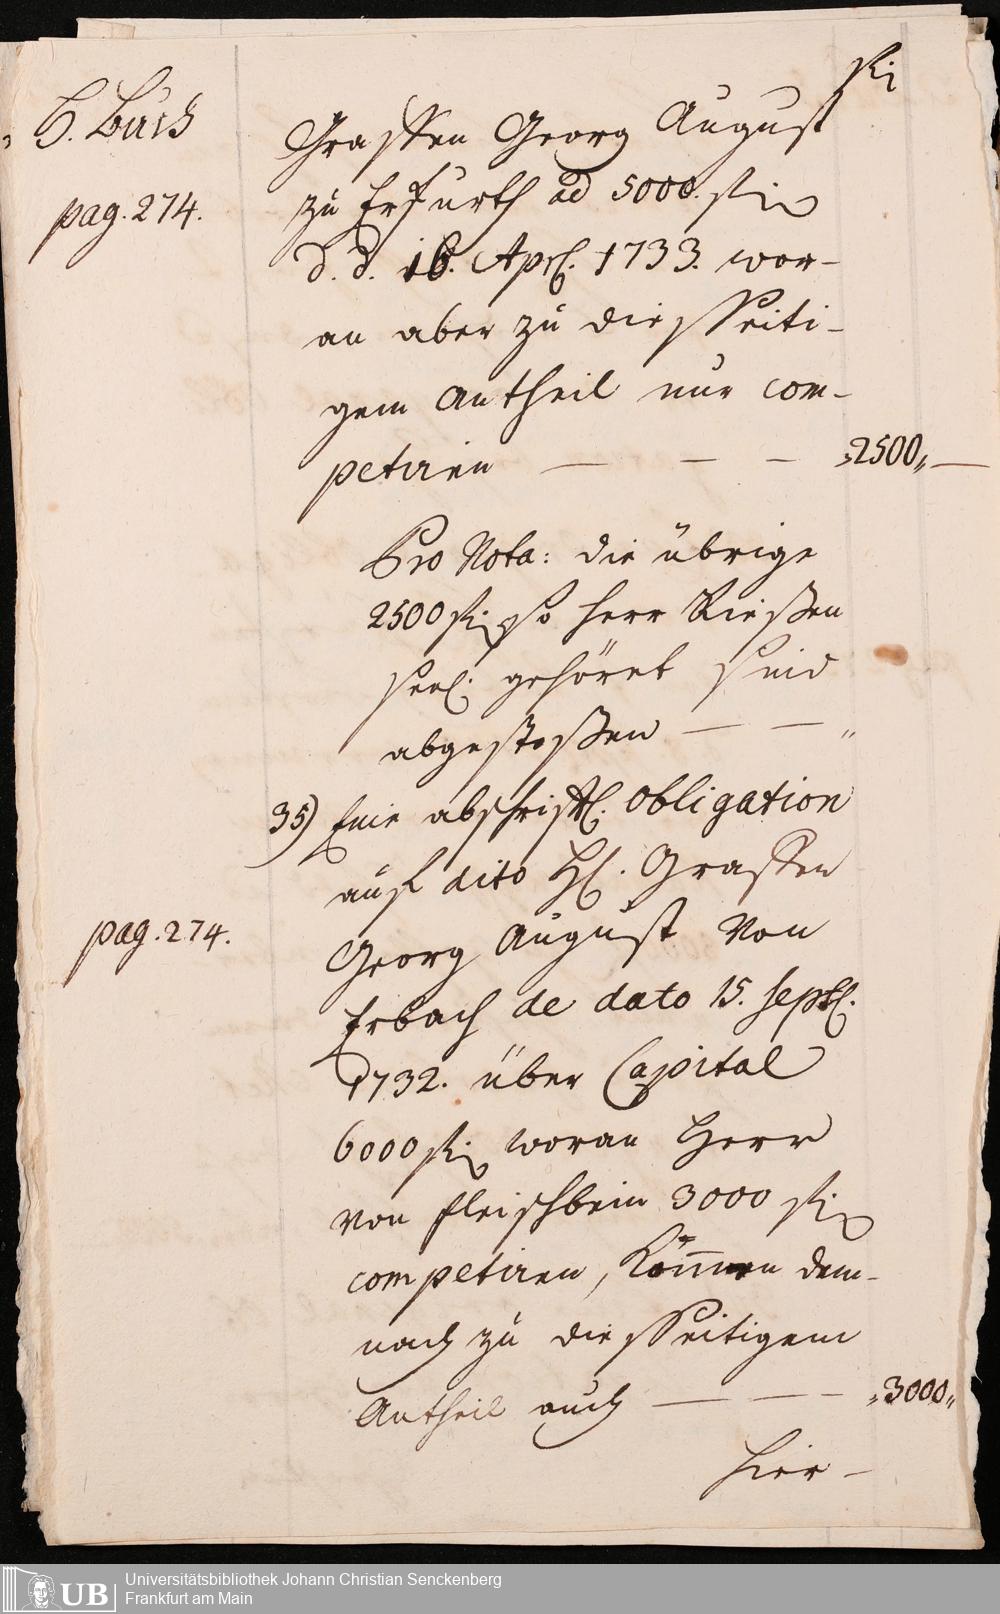 fl:
H. Buch
Graffen Georg August
pag. 274.
zu Erfurth ad 5000. fl:
d. d. 16. Apl. 1733. wor-
an aber zu diesseiti-
gem Antheil nur com-
petiren — — — „2500„ —
Pro Nota: die übrige
2500 fl: so Herr Rießen
seel. gehöret seind
abgestoßen — — „
35) Eine abschriftl. Obligation
auf dito H. Graffen
pag. 274.
Georg August von
Erbach de dato 15. Septl.
1732. über Capital
6000 fl: woran Herr
von Fleischbein 3000 fl:
competiren, können dem-
nach zu diesseitigem
Antheil auch — — — „3000„
hier-
UB
Universitätsbibliothek Johann Christian Senckenberg
Frankfurt am Main